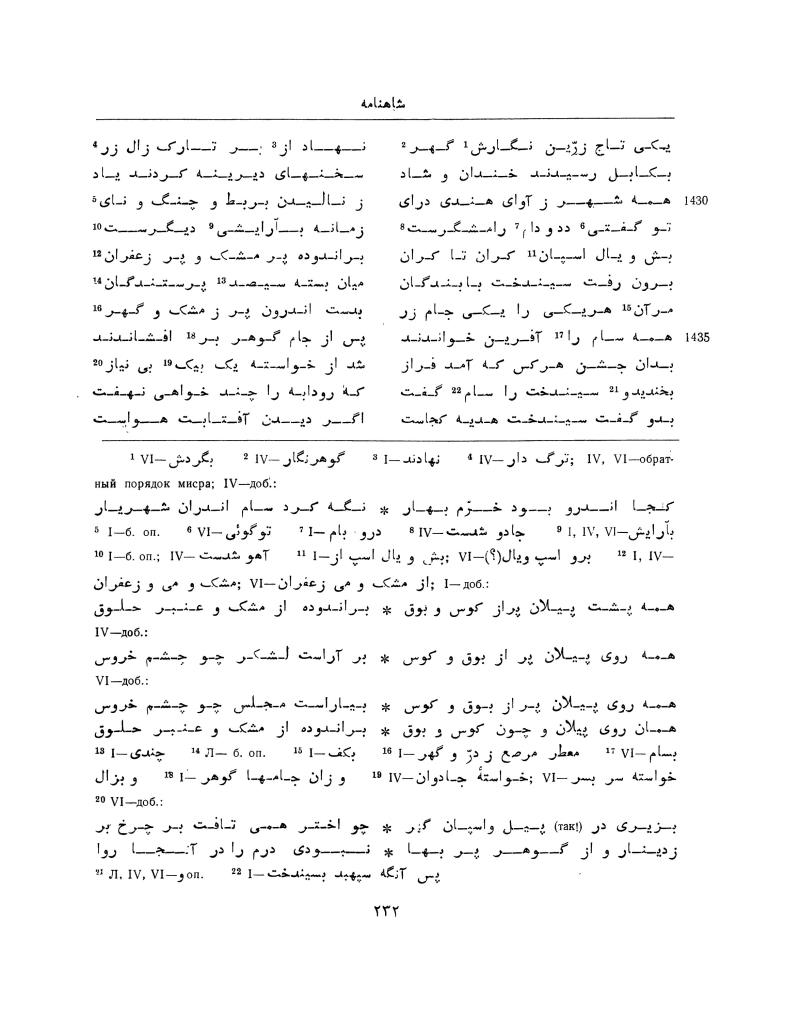 شاهنامه
یکی تاج زرّین نگارش¹ گهر² نهاد از³ بر تارک زال زر⁴
بکابل رسیدند خندان و شاد سخنهای دیرینه کردند یاد
1430 همه شهر ز آوای هندی درای ز نالیدن بربط و چنگ و نای⁵
تو گفتی⁶ دد و دام⁷ رامشگرست⁸ زمانه بآرایشی⁹ دیگرست¹⁰
بش و یال اسپان¹¹ کران تا کران براندوده پر مشک و پر زعفران¹²
برون رفت سیندخت با بندگان میان بسته سیصد¹³ پرستندگان¹⁴
مرآن¹⁵ هریکی را یکی جام زر بدست اندرون پر ز مشک و گهر¹⁶
1435 همه سام را¹⁷ آفرین خواندند پس از جام گوهر بر¹⁸ افشاندند
بدان جشن هرکس که آمد فراز شد از خواسته یک بیک¹⁹ بی نیاز²⁰
بخندید و²¹ سیندخت را سام²² گفت که رودابه را چند خواهی نهفت
بدو گفت سیندخت هدیه کجاست اگر دیدن آفتابت هواست
¹ VI—بگردش ² IV—گوهرنگار ³ I—نهادند ⁴ IV—ترگ دار; IV, VI—обрат-
ный порядок мисра; IV—доб.:
کنجا اندرو بود خرّم بهار * نگه کرد سام اندران شهریار
⁵ I—б. оп. ⁶ VI—توگوئی ⁷ I—درو بام ⁸ IV—جادو شدست ⁹ I, IV, VI—بآرایش
¹⁰ I—б. оп.; IV—آهو شدست ¹¹ I—بش و یال اسپ از; VI—(؟)برو اسپ ویال ¹² I, IV—
مشک و می و زعفران; VI—از مشک و می زعفران; I—доб.:
همه پشت پیلان پراز کوس و بوق * براندوده از مشک و عنبر حلوق
IV—доб.:
همه روی پیلان پر از بوق و کوس * بر آراست لشکر چو چشم خروس
VI—доб.:
همه روی پیلان پر از بوق و کوس * بیاراست مجلس چو چشم خروس
همان روی پیلان و چون کوس و بوق * براندوده از مشک و عنبر حلوق
¹³ I—چندی ¹⁴ Л— б. оп. ¹⁵ I—بکف ¹⁶ I—معطر مرصع ز درّ و گهر ¹⁷ VI—بسام
و بزال ¹⁸ I—و زان جامها گوهر ¹⁹ IV—خواستهٔ جادوان; VI—خواسته سر بسر
²⁰ VI—доб.:
بزیری در (так!) پیل واسپان گبر * چو اختر همی تافت بر چرخ بر
زدینار و از گوهر پر بها * نبودی درم را در آنجا روا
²¹ Л, IV, VI—و оп. ²² I—پس آنگه سپهبد بسیندخت
۲۳۲